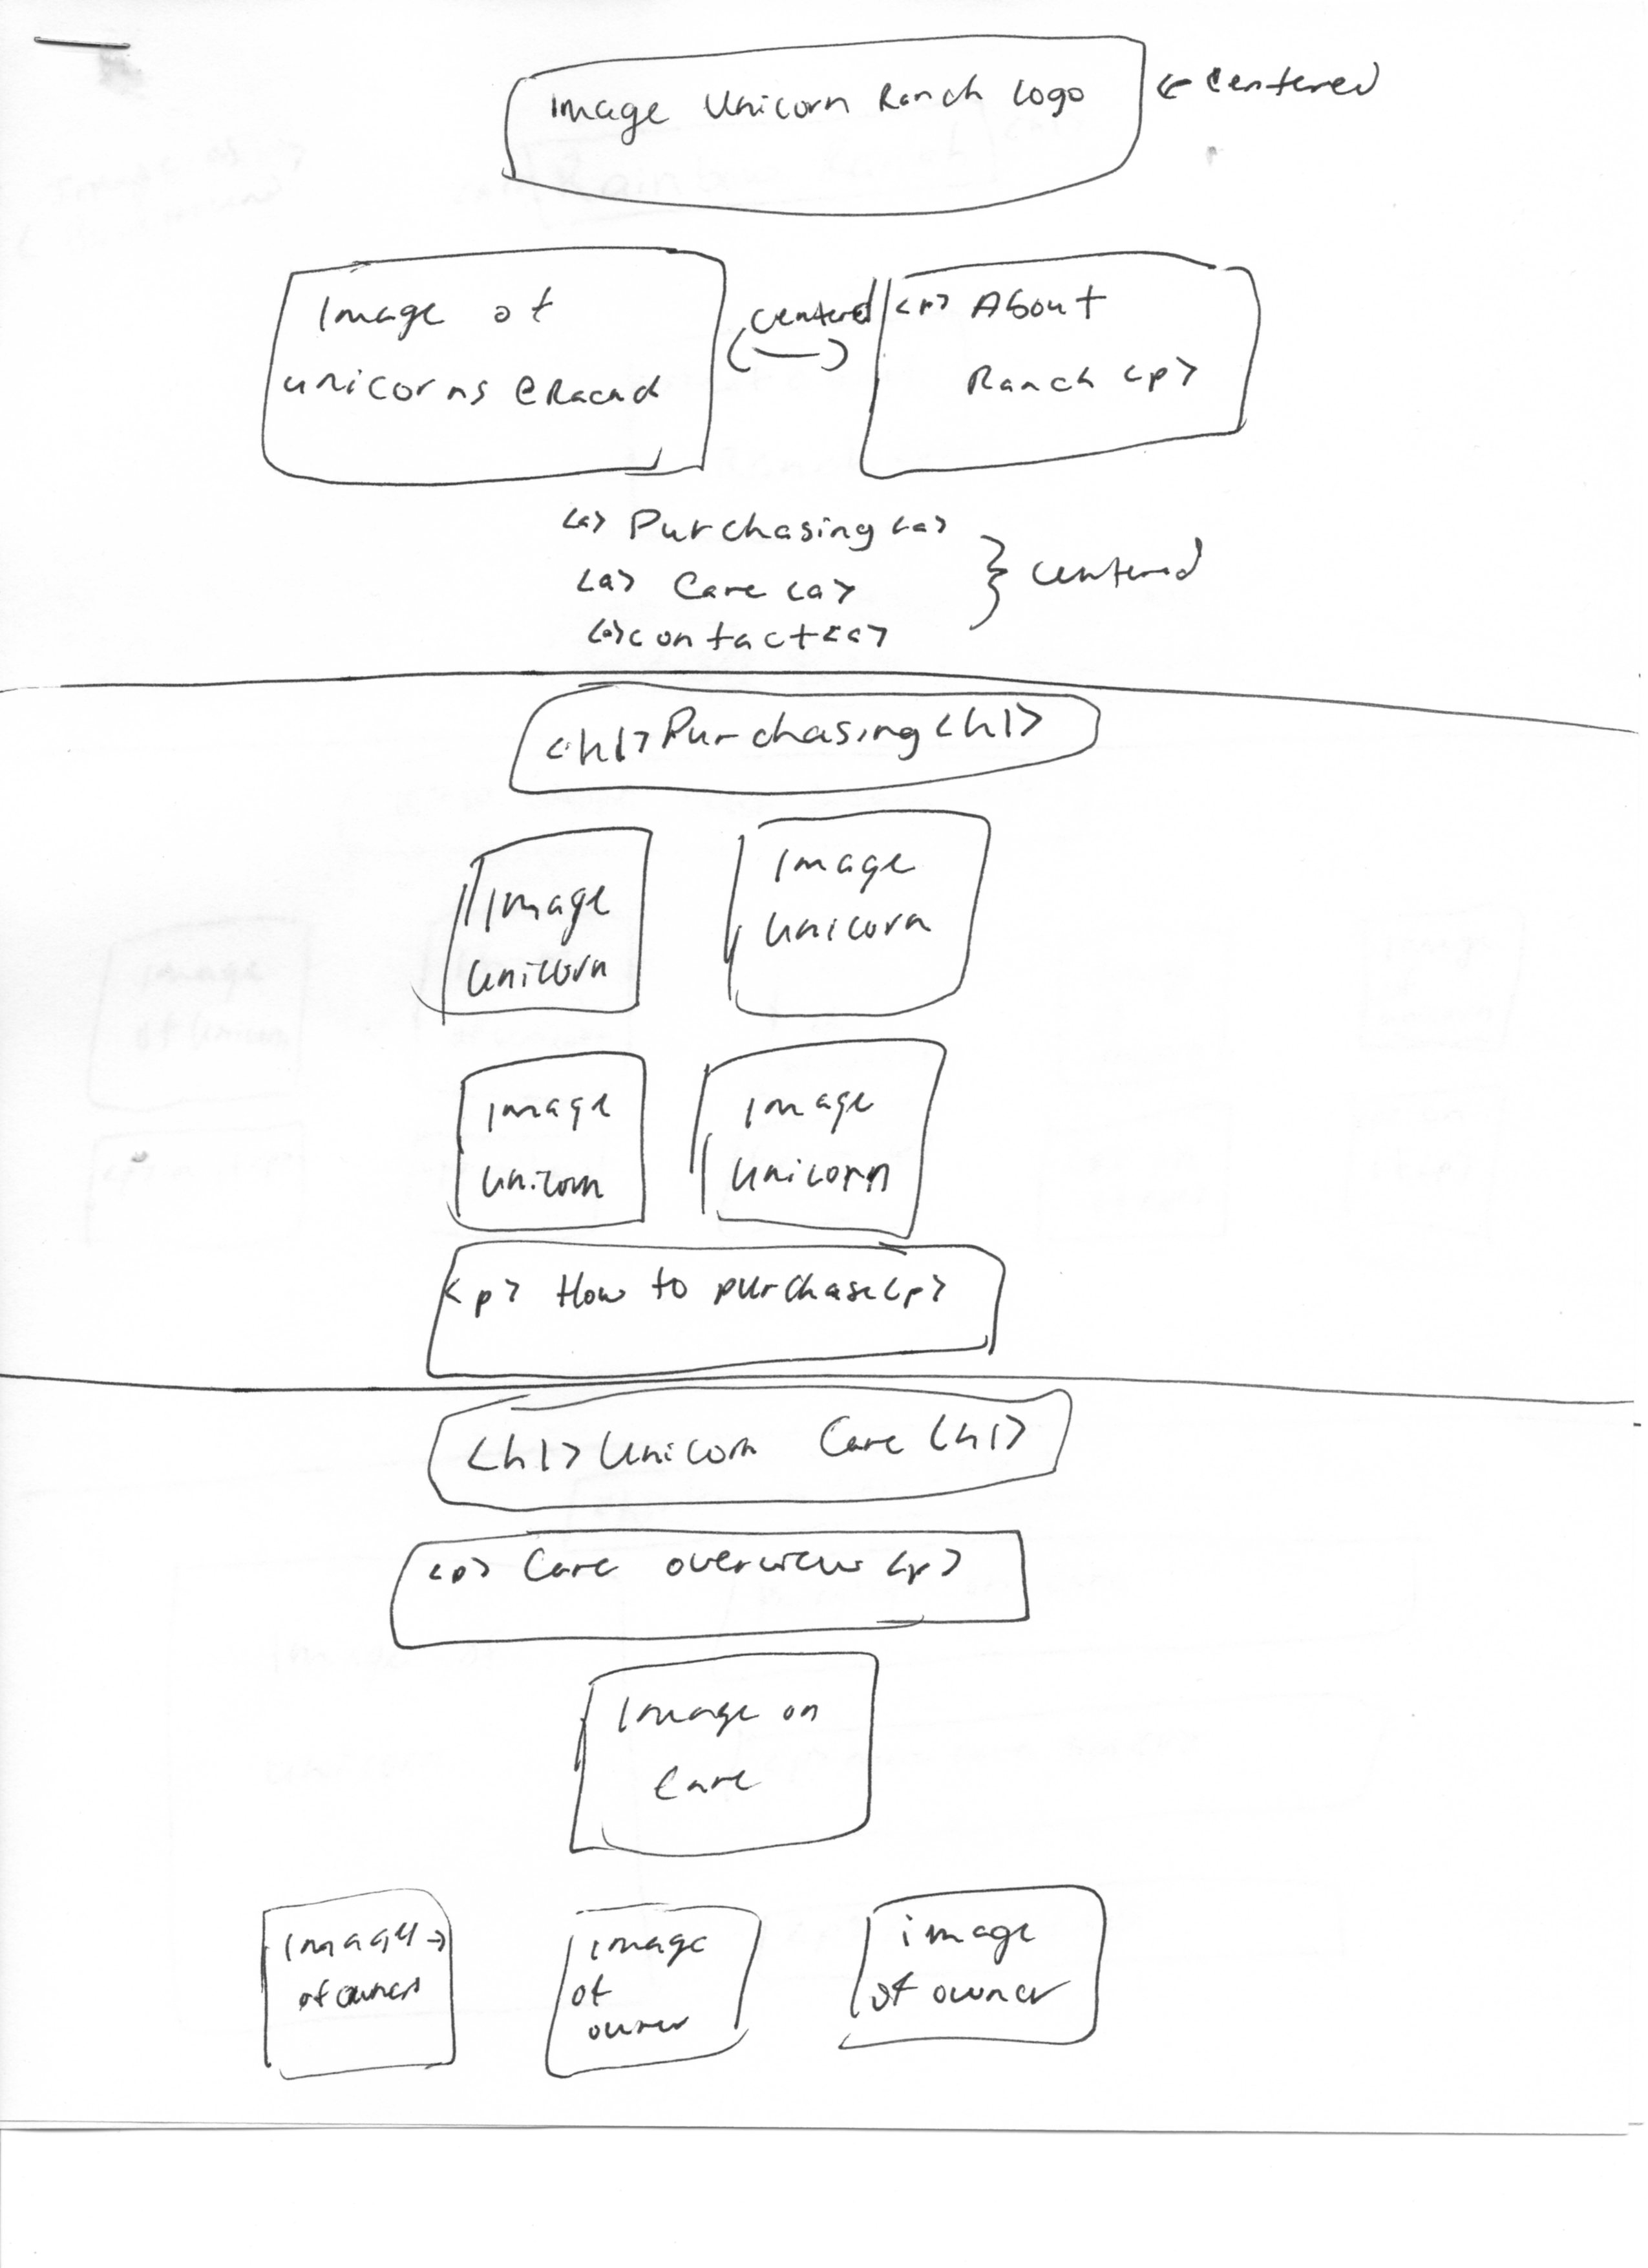 Image Unicorn Ranch Logo ← Centered
Image of
unicorns @
Centered
<p> About
Ranch <p>
<a> Purchasing <a>
<a> Care <a>
<a>contact<a>
} Centered
<h1>Purchasing<h1>
Image
Unicorn
Image
Unicorn
Image
Unicorn
Image
Unicorn
<p> How to purchase<p>
<h1>Unicorn Care <h1>
<p> Care overview <p>
Image on
Care
Image
of owner
image
of
owner
image
of owner